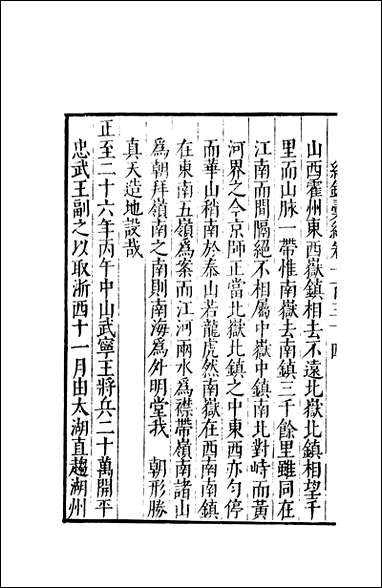 紀錄彙編卷一百三十四
山西霍州東西嶽鎮相去不遠北嶽北鎮相望千
里而山脉一帶惟南嶽去南鎮三千餘里雖同在
江南而間隔絕不相屬中嶽中鎮南北對峙而黃
河界之今京師正當北嶽北鎮之中東西亦勻停
而華山稍南於泰山若龍虎然南嶽在西南南鎮
在東南五嶺爲案而江河兩水爲襟帶嶺南諸山
爲朝拜嶺南之南則南海爲外明堂我　朝形勝
真天造地設哉
正至二十六年丙午中山武寧王將兵二十萬開平
忠武王副之以取浙西十一月由太湖直趨湖州